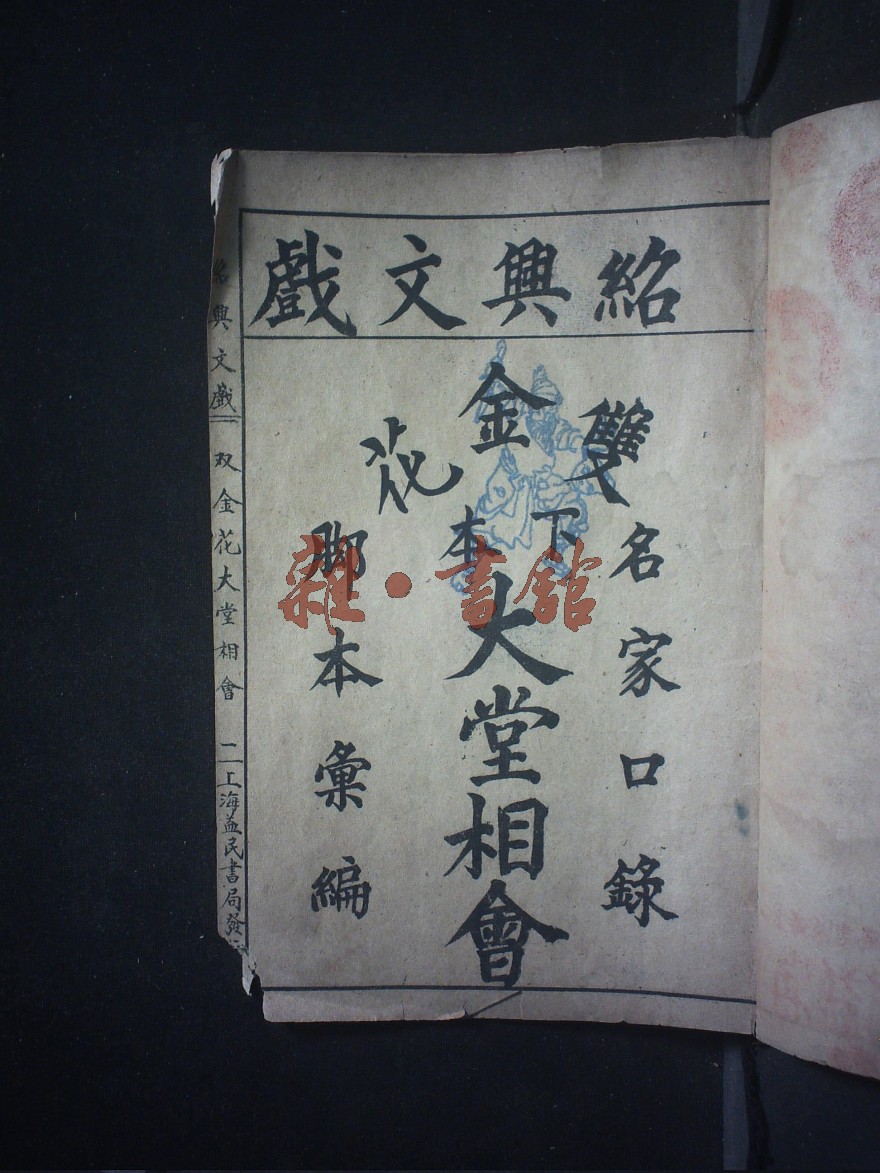 紹興文戲
雙金花
下本
大堂相會
名家口錄
脚本彙編
雜·書館
紹興文戲 双金花大堂相會 二 上海益民書局發